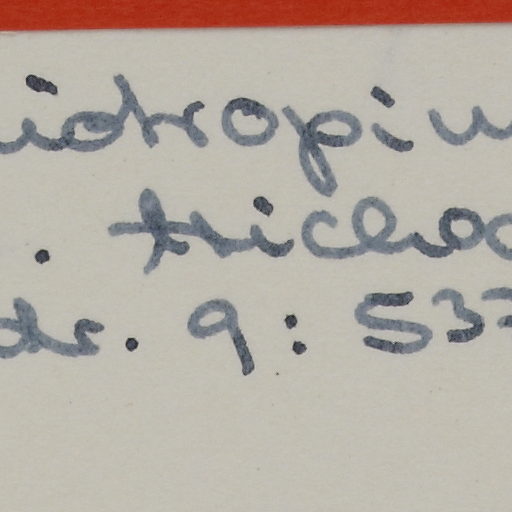 idropiu
. tricho
dr. 9: 537